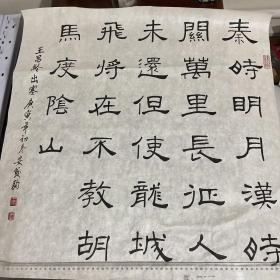 秦時明月漢時
關萬里長征人
未還但使龍城
飛將在不教胡
馬度陰山
王昌龄出塞庚寅年初冬